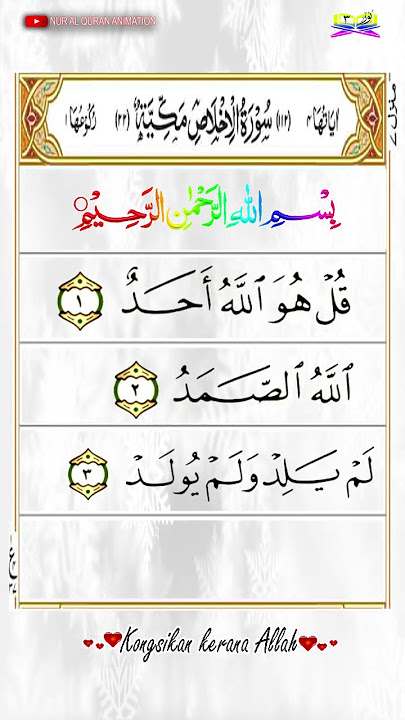 NUR AL QURAN ANIMATION
نور ٣
اٰيَاتُهَا ٤ (١١٢) سُوْرَةُ الْاِخْلَاصِ مَكِّيَّةٌ (٢٢) رُكُوْعُهَا ١
منزل ٧
بِسْمِ اللهِ الرَّحْمٰنِ الرَّحِيْمِ
قُلْ هُوَ ٱللَّهُ أَحَدٌ ١
ٱللَّهُ ٱلصَّمَدُ ٢
لَمْ يَلِدْ وَلَمْ يُولَدْ ٣
Kongsikan kerana Allah